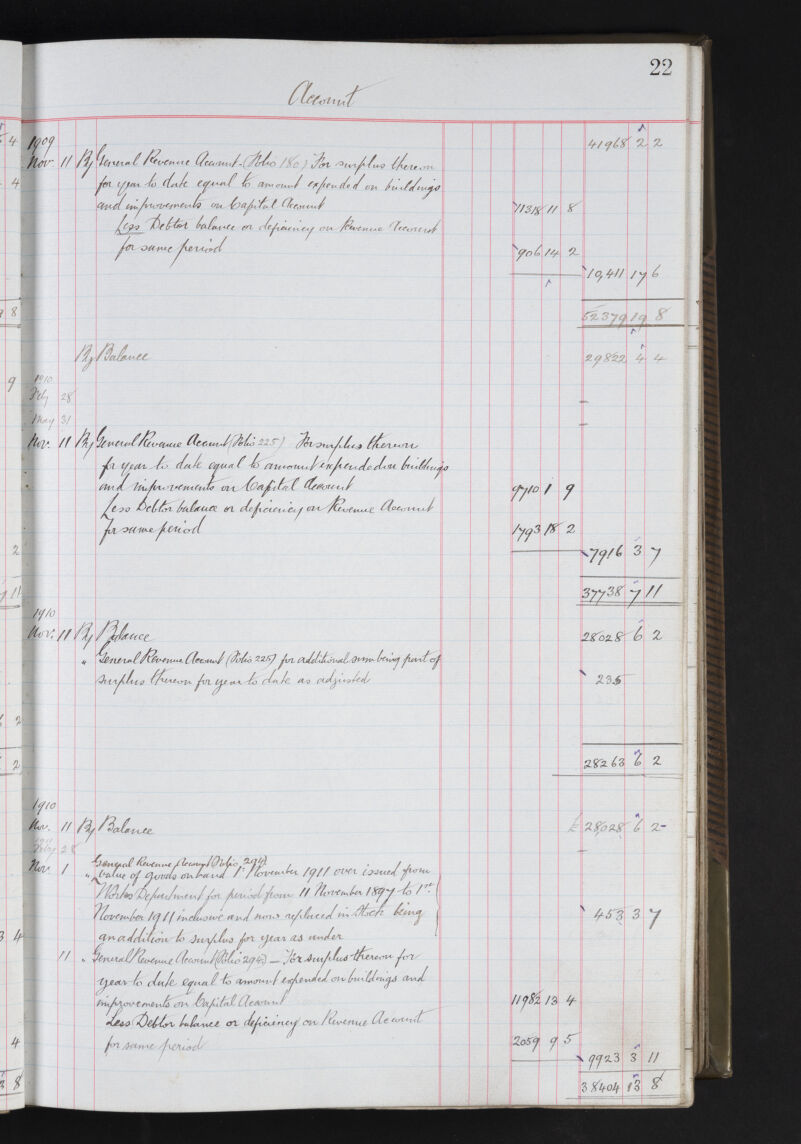 22
Account
41968 2 2
1909
Nov. 11 By General Revenue Account - (Folio 180) For surplus thereon
for year to date equal to amount expended on buildings
and improvements on Capital Account 11318 11 8
Less Debtor balance or deficiency on Revenue Account
for same period 906 14 2
10,411 17 6
52379 19 8
By Balance 29822 4 4
1910
Feby 28 –
May 31 –
Nov. 11 By General Revenue Account (Folio 225) For surplus thereon
for year to date equal to amount expended on buildings
and improvements on Capital Account 9710 1 9
Less Debtor balance or deficiency on Revenue Account
for same period 1793 18 2
7916 3 7
37738 7 11
1910
Nov. 11 By Balance 28028 6 2
" General Revenue Account (Folio 225) for additional sum being part of
surplus thereon for year to date as adjusted 235
28263 6 2
1910
Nov. 11 By Balance £ 28,028 6 2
Feby 28 –
General Revenue Account (Folio 294)
Nov. 1 " value of goods on hand 1st November 1911 over issued from
Works Department for period from 11 November 1897 to 1st
November 1911 inclusive and now replaced in Stock being 453 3 7
an addition to surplus for year as under
11 " General Revenue Account (Folio 294) – For surplus thereon for
year to date equal to amount expended on buildings and
improvements on Capital Account 11982 13 4
Less Debtor balance or deficiency on Revenue Account
for same period 2059 9 5
9923 3 11
38404 13 8